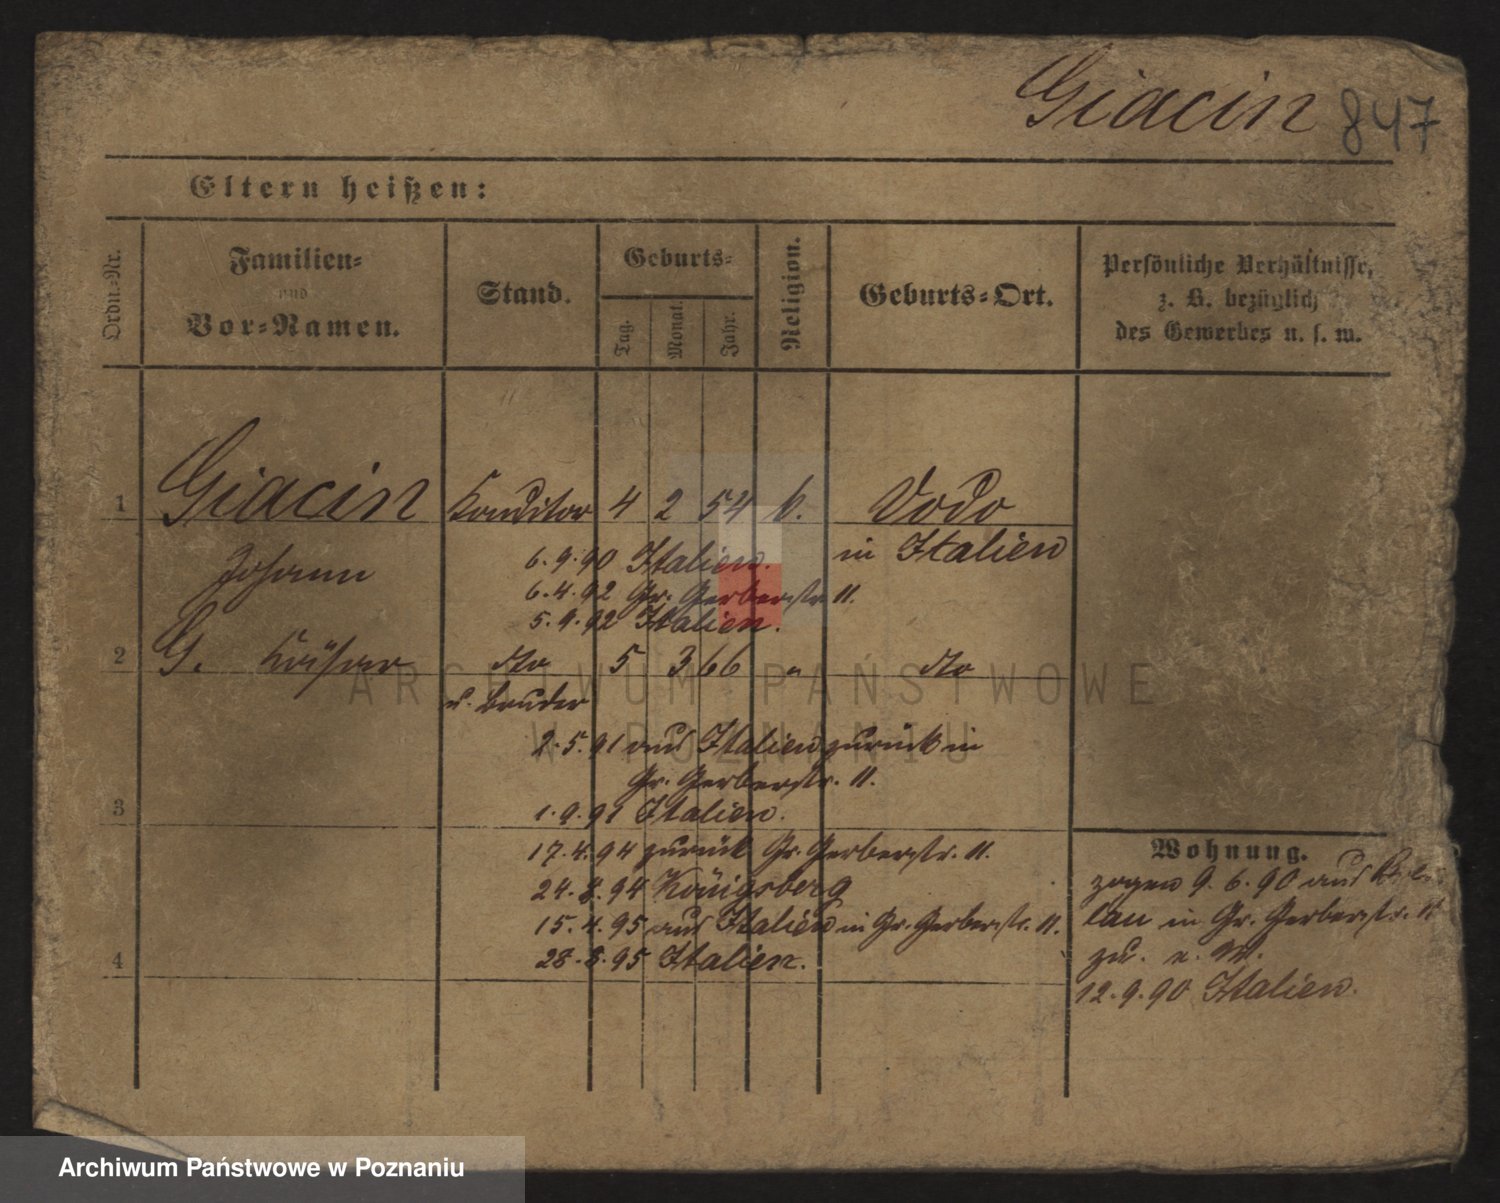 Giacin 847
Eltern heißen:
Ordn.-Nr.
Familien-
und
Vor-Namen.
Stand.
Geburts-
Tag.
Monat.
Jahr.
Religion.
Geburts-Ort.
Persönliche Verhältnisse,
z. B. bezüglich
des Gewerbes u. s. w.
1 Giacin Konditor 4 2 54 k. Vodo
Johann 6.9.90 Italien. in Italien
6.4.92 Gr. Gerberstr. 11.
5.9.92 Italien.
2 G. dto 5 3 66 " dto
u. Bruder
2.5.91 aus Italien zurück in
Gr. Gerberstr. 11.
3 1.9.91 Italien.
17.4.94 zurück Gr. Gerberstr. 11.
24.8.94 Königsberg
15.4.95 aus Italien in Gr. Gerberstr. 11.
4 28.8.95 Italien.
Wohnung.
zogen 9.6.90 aus
lau in Gr. Gerberstr. 11
zu.
12.9.90 Italien.
ARCHIWUM PAŃSTWOWE
W POZNANIU
Archiwum Państwowe w Poznaniu